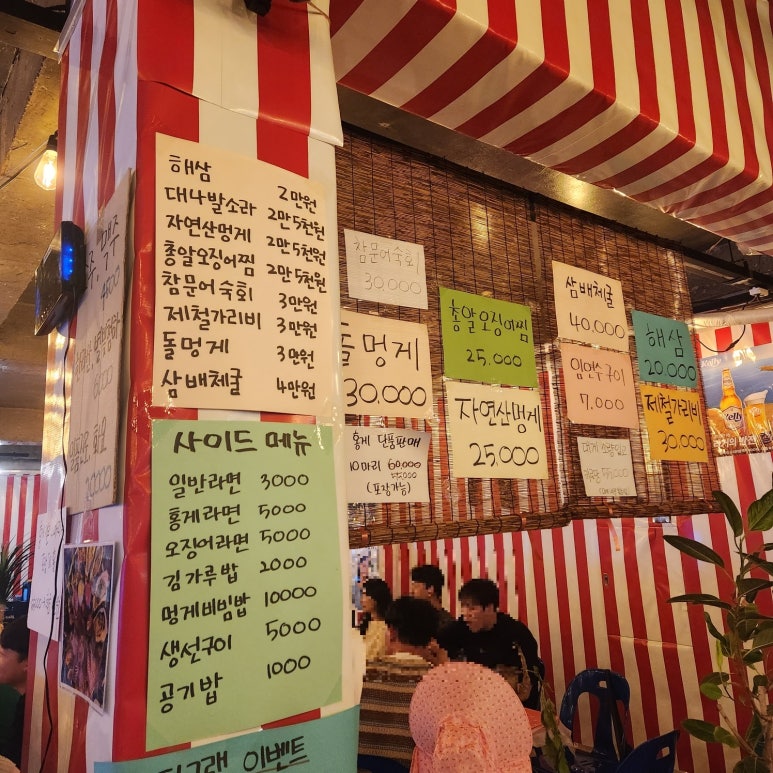 해삼 2만원
대나발소라 2만5천원
자연산멍게 2만5천원
총알오징어찜 2만5천원
참문어숙회 3만원
제철가리비 3만원
돌멍게 3만원
삼배체굴 4만원
사이드 메뉴
일반라면 3000
홍게라면 5000
오징어라면 5000
김가루밥 2000
멍게비빔밥 10000
생선구이 5000
공기밥 1000
이벤트
참문어숙회
30,000
돌멍게
30,000
홍게 단품판매
10마리 60,000
55,000
(포장가능)
총알오징어찜
25,000
자연산멍게
25,000
삼배체굴
40,000
임연수구이
7,000
해삼
20,000
제철가리비
30,000
맥주
Kelly